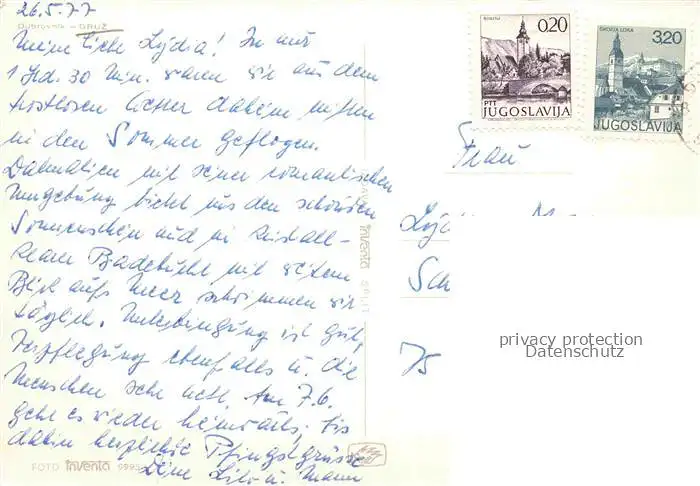 26.5.77
Dubrovnik - GRUŽ
Meine liebe Lydia! In nur
1 Std. 30 Min. waren wir aus dem
trostlosen Wetter daheim mitten
in den Sommer geflogen.
Dalmatien mit seiner romantischen
Umgebung bietet uns den schönsten
Sonnenschein und in kristall-
klarer Badebucht mit weitem
Blick aufs Meer schwimmen wir
täglich. Unterbringung ist gut,
Verpflegung ebenfalls u. die
Menschen sehr nett. Am 7.6.
geht es wieder heimwärts; bis
dahin herzliche Pfingstgrüsse
Deine u. Mann
FOTO inventa
inventa SPLIT
BOHINJ
0,20
PTT
JUGOSLAVIJA
ŠKOFJA LOKA
3,20
JUGOSLAVIJA
Frau
75
privacy protection
Datenschutz